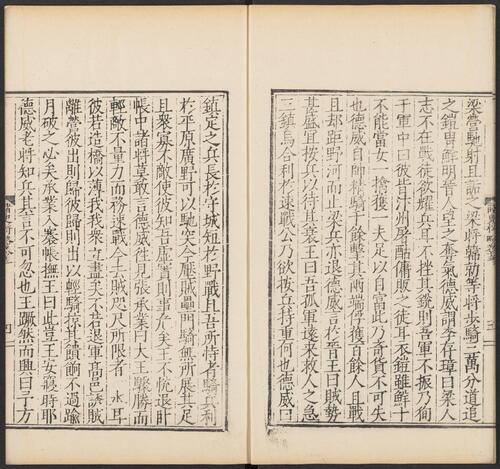 梁營馳射且詬之梁將韓勍等將步騎三萬分道追
之鎧冑鮮明晉人望之奪氣德威謂李存璋曰梁人
志不在戰徒欲耀兵耳不挫其銳則吾軍不振乃徇
于軍中曰彼皆汴州屠酤傭販之徒耳衣鎧雖鮮十
不能當女一擒獲一夫足以自富此乃奇貨不可失
也德威自帥精騎千餘擊其兩端俘獲百餘人且戰
且却距野河而止梁兵亦退德威言於晉王曰賊勢
甚盛宜按兵以待其衰王曰吾孤軍遠來救人之急
三鎮烏合利於速戰公乃欲按兵持重何也德威曰
鎮定之兵長於守城短於野戰且吾所恃者騎兵利
於平原廣野可以馳突今壓賊壘門騎無所展其足
且眾寡不敵使彼知吾虛實則事危矣王不悅退臥
帳中諸將莫敢言德威往見張承業曰大王驟勝而
輕敵不量力而務速戰今去賊咫尺所限者一水耳
彼若造橋以薄我我眾立盡矣不若退軍高邑誘賊
離營彼出則歸彼歸則出以輕騎掠其饋餉不過踰
月破之必矣承業入褰帳撫王曰此豈王安寢時耶
德威老將知兵其言不可忽也王蹶然而興曰予方